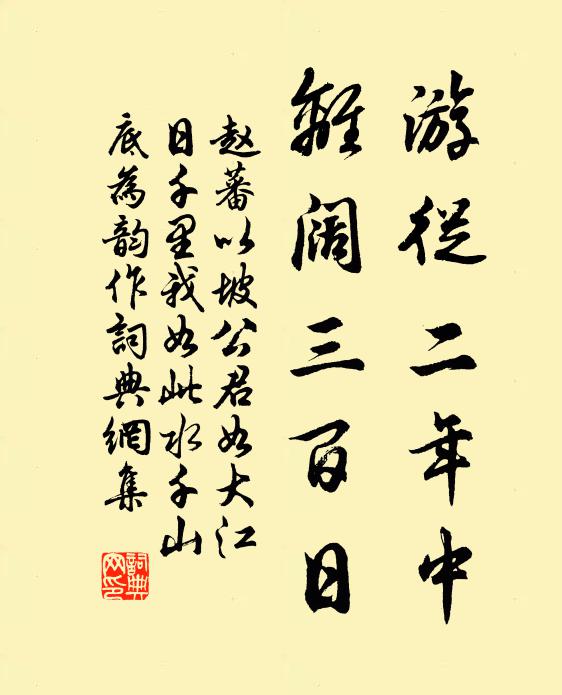 游從二年中
離阔三百日
赵蕃以坡公君如大江
日千里我如此水千山
底為韵作詞典網集
詞典网印